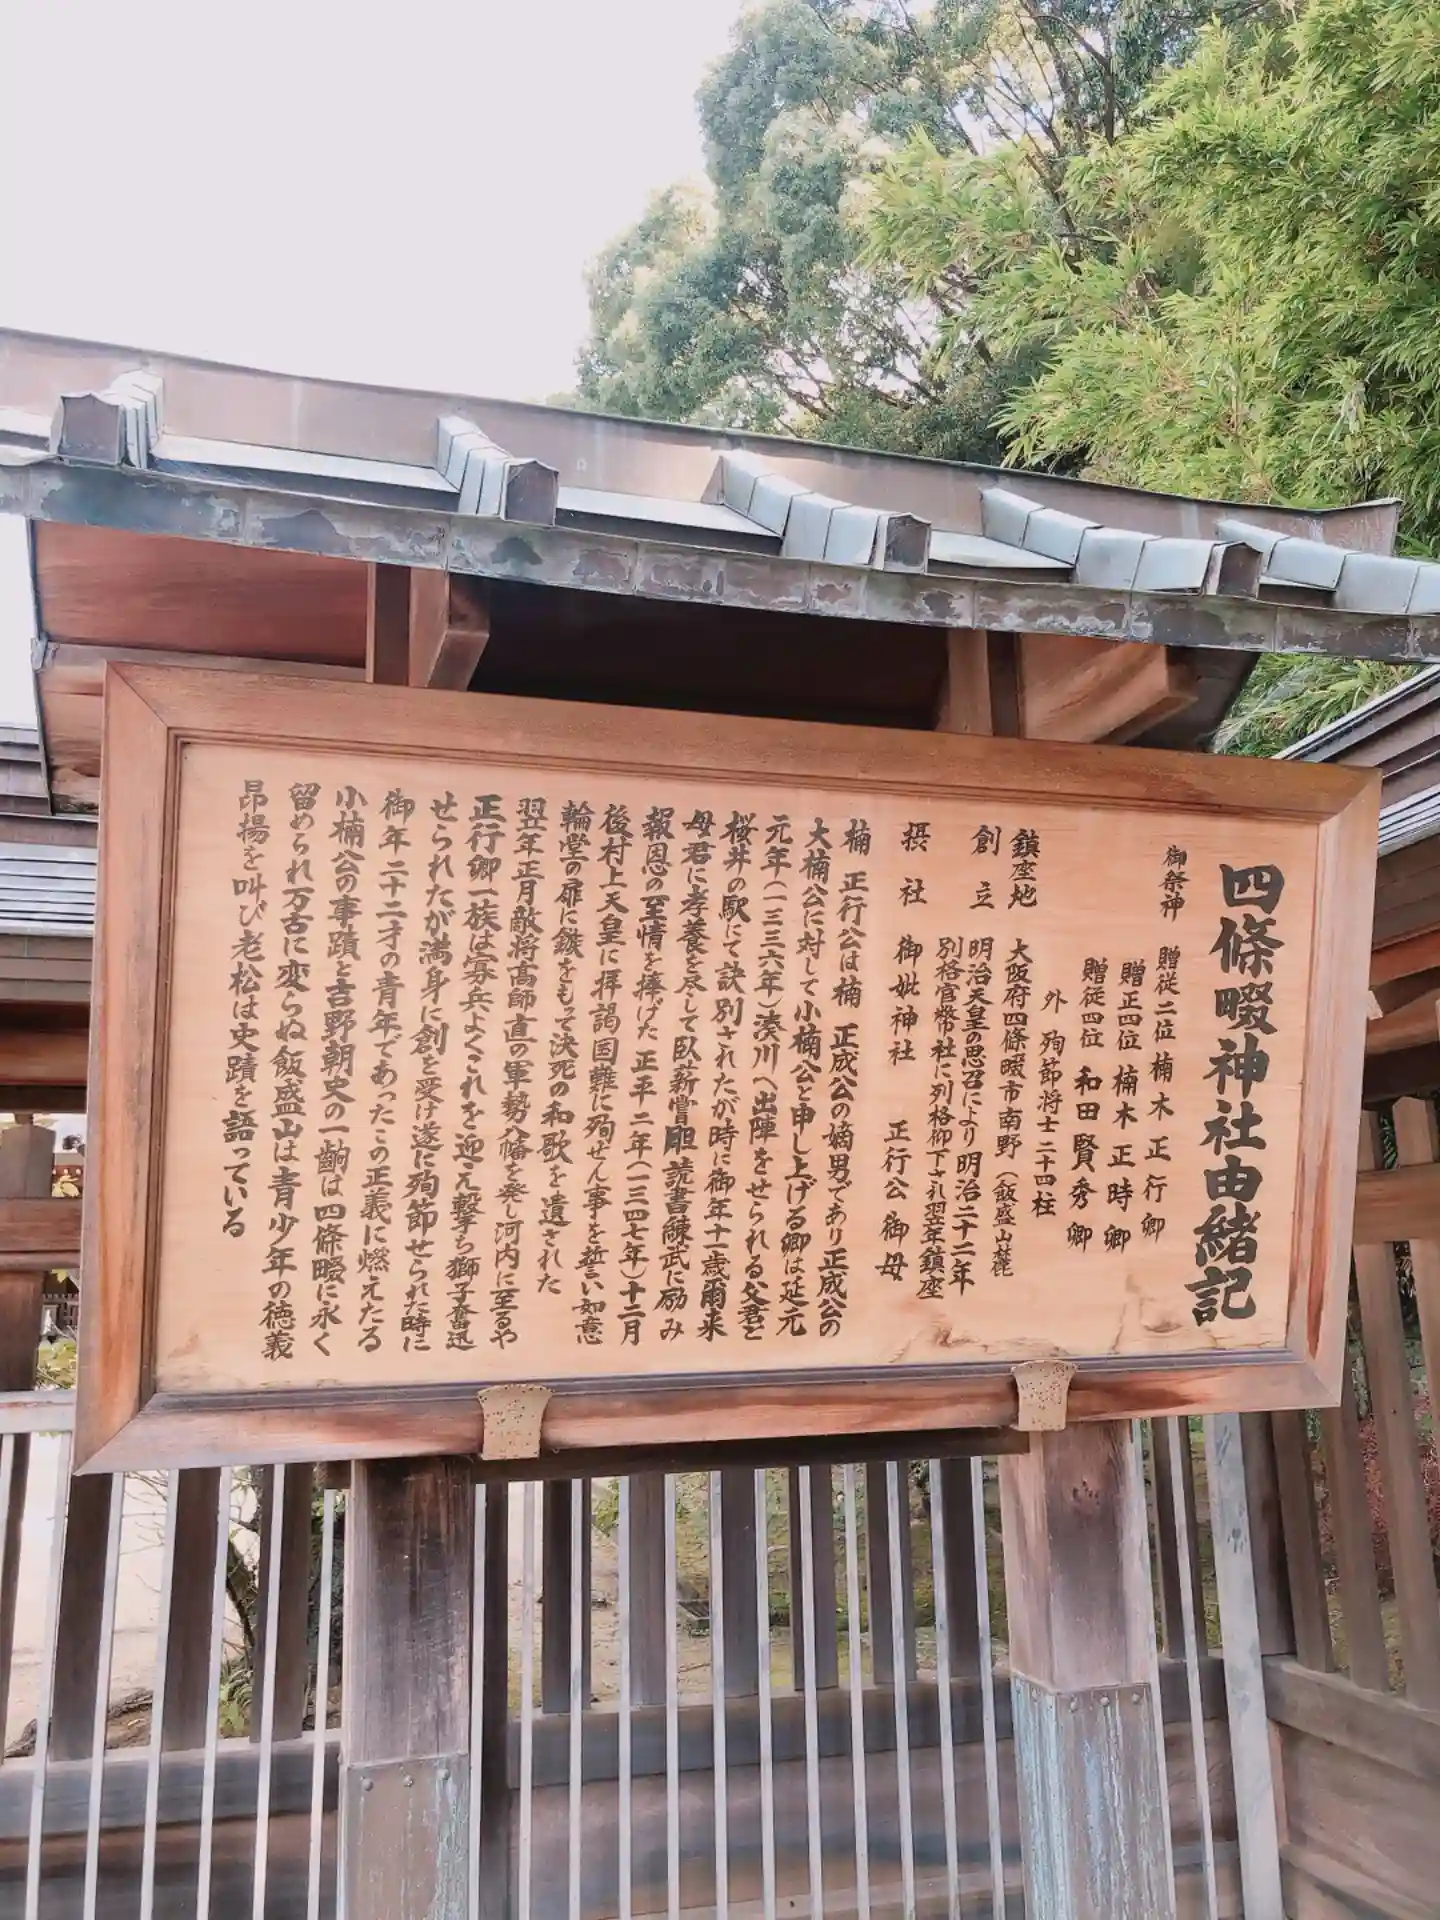 四條畷神社由緒記
御祭神 贈従二位 楠木正行卿
贈正四位 楠木正時卿
贈従四位 和田賢秀卿
外 殉節将士二十四柱
鎮座地 大阪府四條畷市南野(飯盛山麓)
創立 明治天皇の思召により明治二十二年
別格官幣社に列格仰下され翌年鎮座
摂社 御妣神社 正行公御母
楠 正行公は楠 正成公の嫡男であり正成公の
大楠公に対して小楠公と申し上げる卿は延元
元年(一三三六年)湊川へ出陣をせられる父君と
桜井の駅にて訣別されたが時に御年十一歳爾来
母君に孝養を尽して臥薪嘗胆読書練武に励み
報恩の至情を捧げた正平二年(一三四七年)十二月
後村上天皇に拝謁国難に殉ぜん事を誓い如意
輪堂の扉に鏃をもって決死の和歌を遺された
翌年正月敵将高師直の軍勢八幡を発し河内に至るや
正行卿一族は寡兵よくこれを迎え撃ち獅子奮迅
せられたが満身に創を受け遂に殉節せられた時に
御年二十二才の青年であったこの正義に燃えたる
小楠公の事蹟と吉野朝史の一齣は四條畷に永く
留められ万古に変らぬ飯盛山は青少年の徳義
昂揚を叫び老松は史蹟を語っている